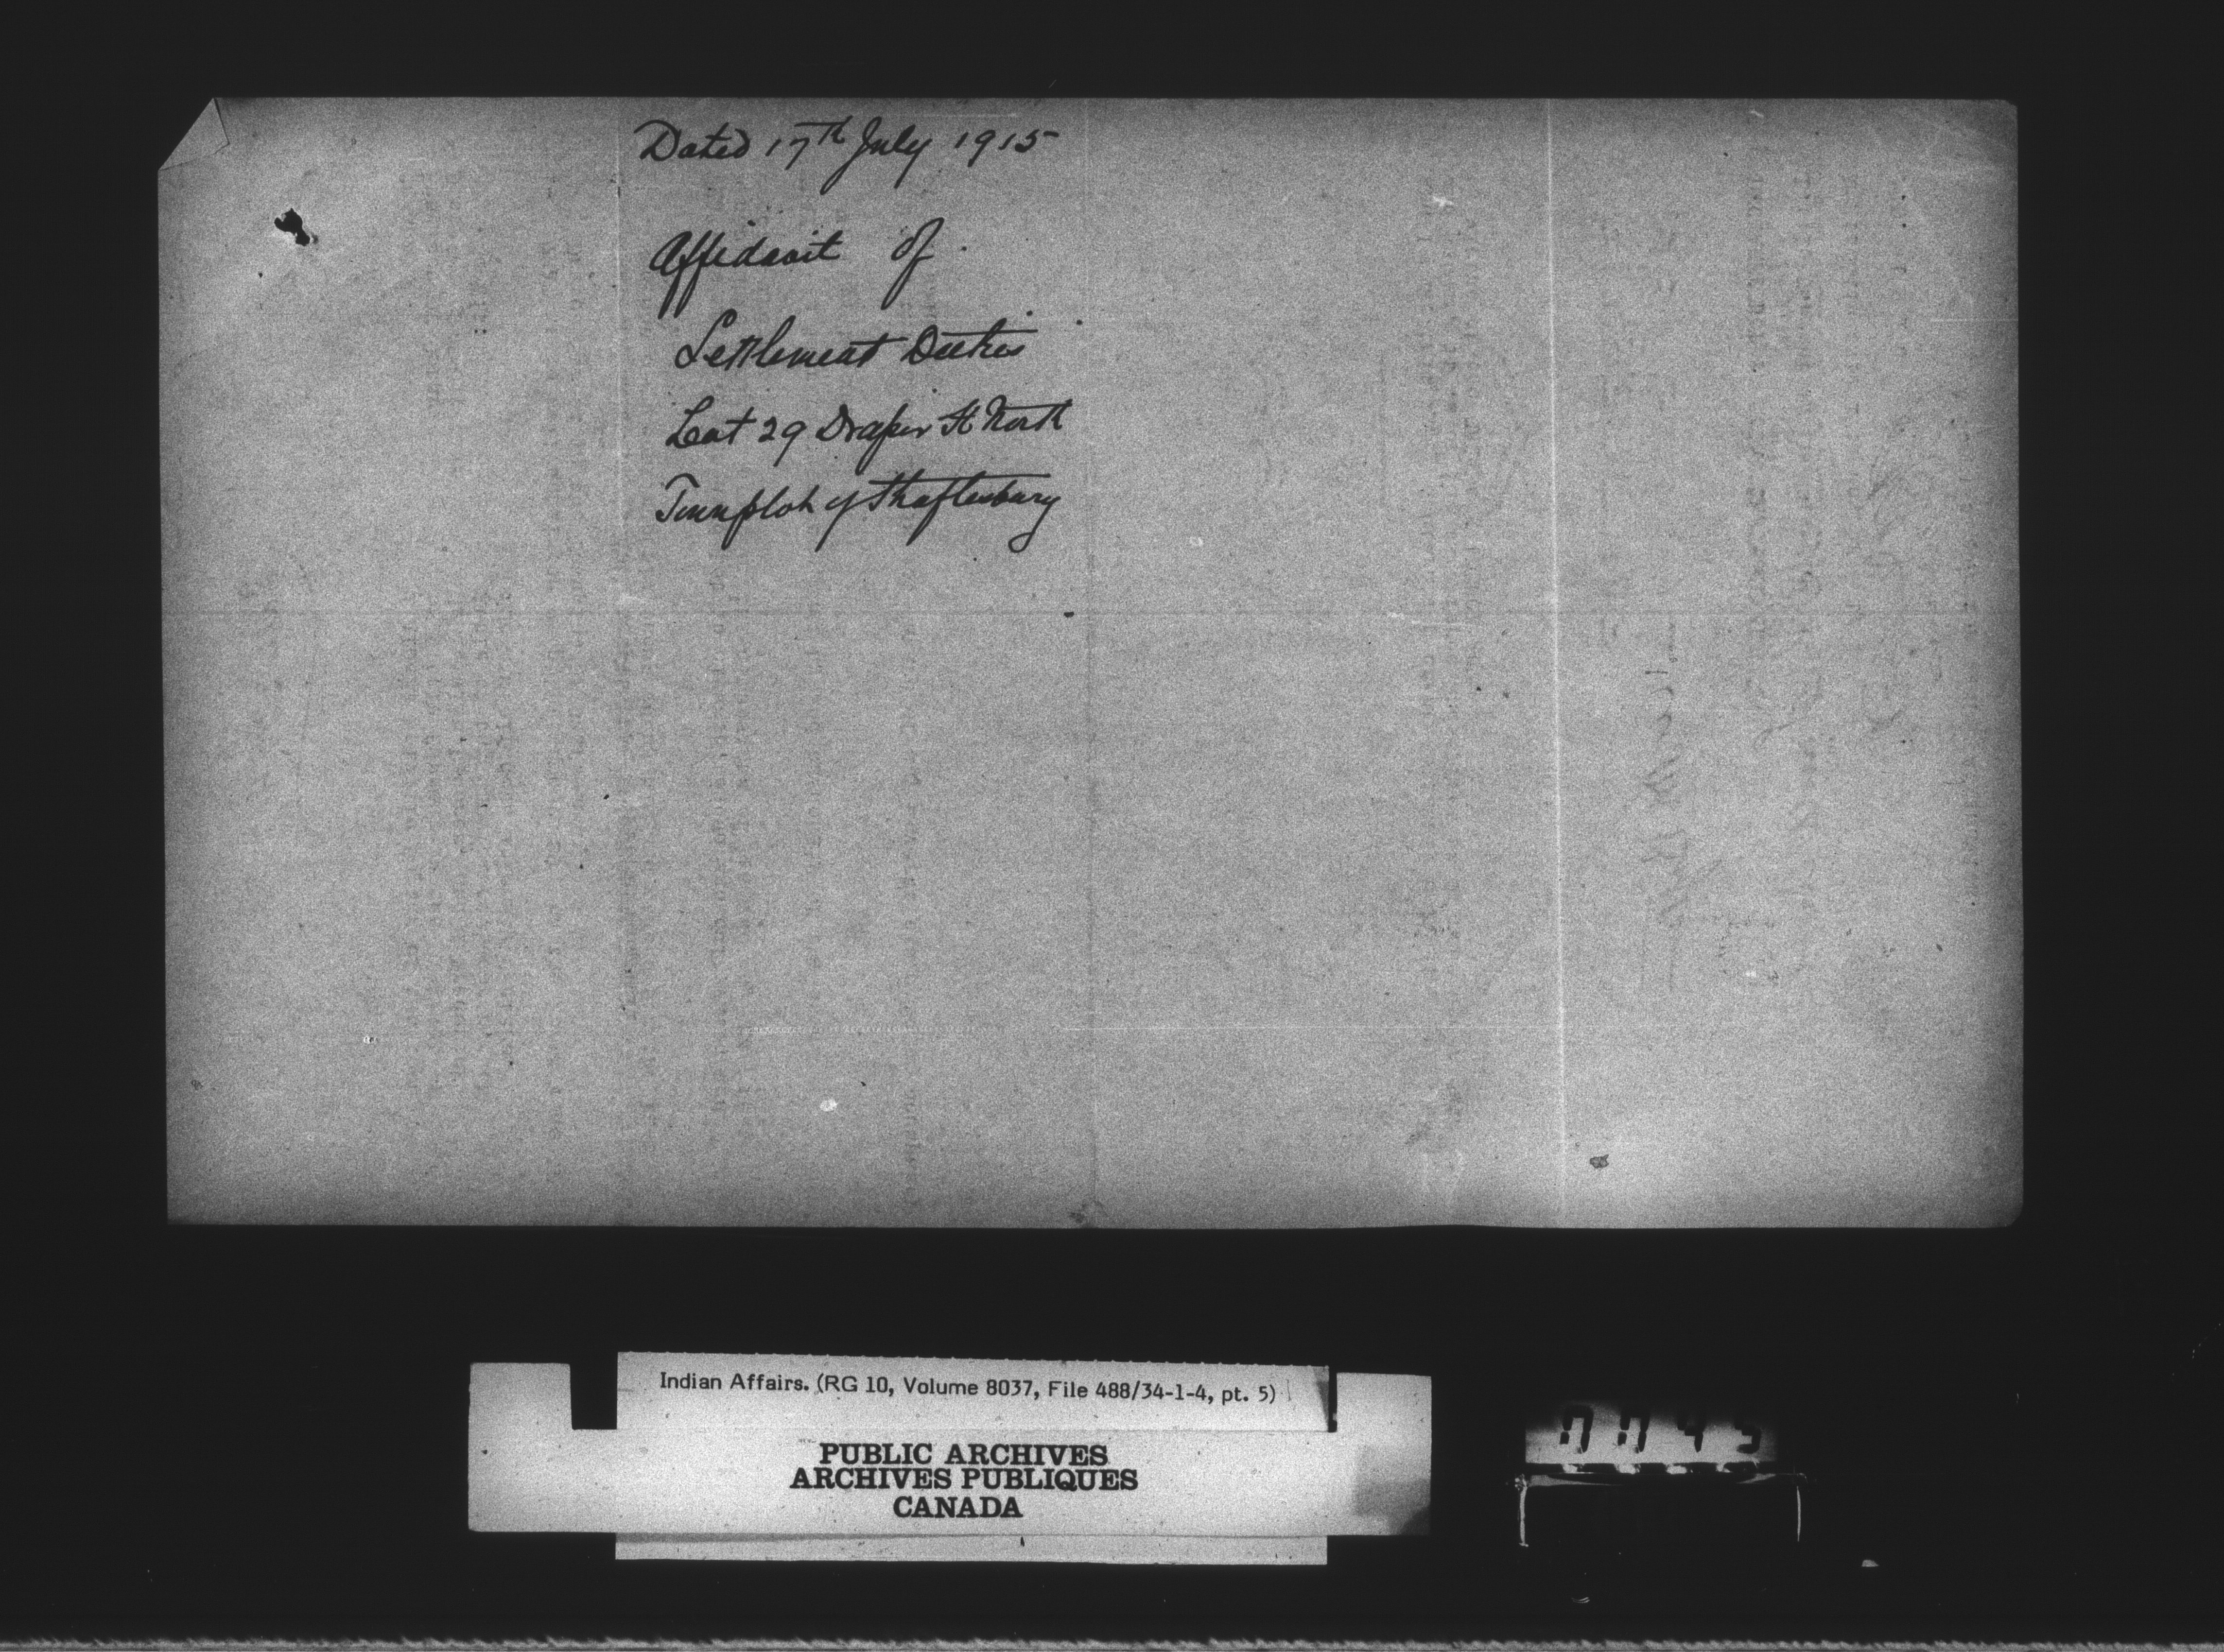 Dated 17th July 1915
Affidavit of
Settlement Duties
Lot 29 Draper St North
Townplot of Shaftesbury
Indian Affairs. (RG 10, Volume 8037, File 488/34-1-4, pt. 5)
PUBLIC ARCHIVES
ARCHIVES PUBLIQUES
CANADA